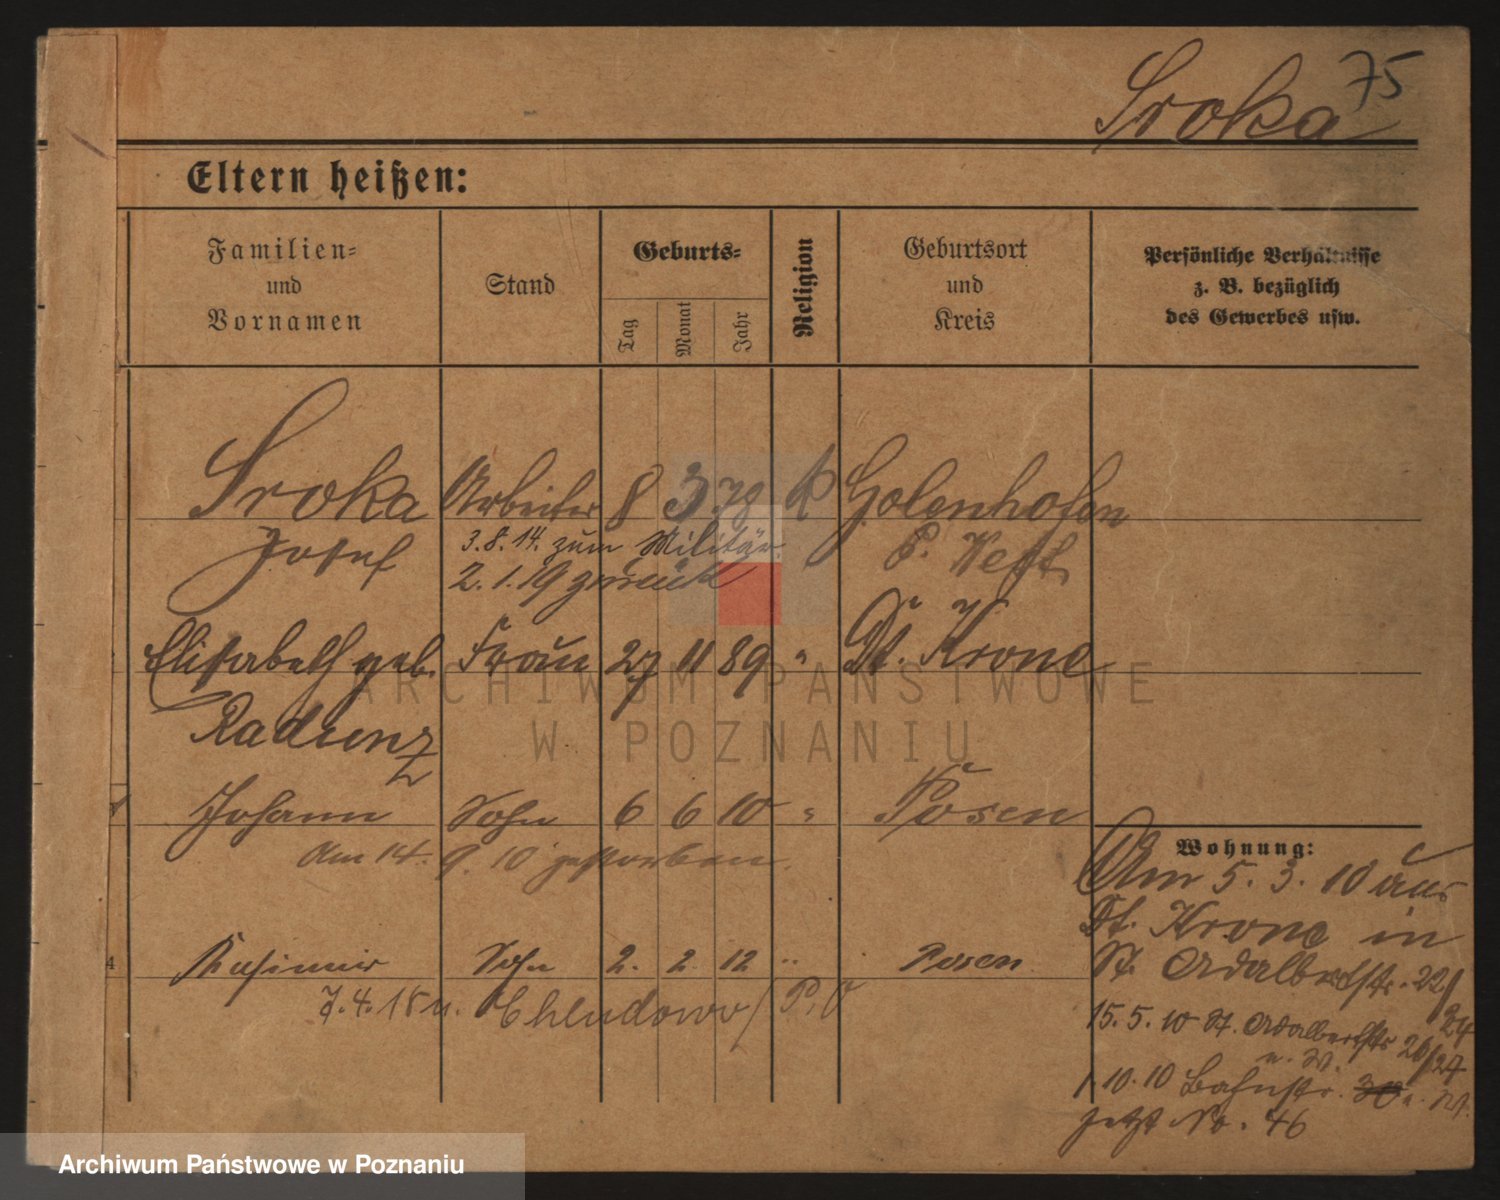 75
Sroka
Eltern heißen:
Familien- und Vornamen
Stand
Geburts-
Tag
Monat
Jahr
Religion
Geburtsort und Kreis
Persönliche Verhältnisse z. B. bezüglich des Gewerbes usw.
Sroka Arbeiter 8 3. 78 k Golenhofen
Josef 3.8.14. zum Militär P. West
2.1.19 zurück
Elisabeth geb. Frau 27 11 89 " Dt. Krone
Radunz
Johann Sohn 6 6 10 " Posen
Am 14. 9. 10 gestorben.
Kasimir Sohn 2. 2 12 " Posen
4
7.4.18 n. Chludowo / P. O
Wohnung:
Am 5. 3. 10 aus
Dt. Krone in
St. Adalbertstr. 22/24
15. 5. 10 St. Adalbertstr 26/27
u. W.
1 10. 10 Bahnstr. 30
jetzt No. 46
ARCHIWUM PAŃSTWOWE
W POZNANIU
Archiwum Państwowe w Poznaniu